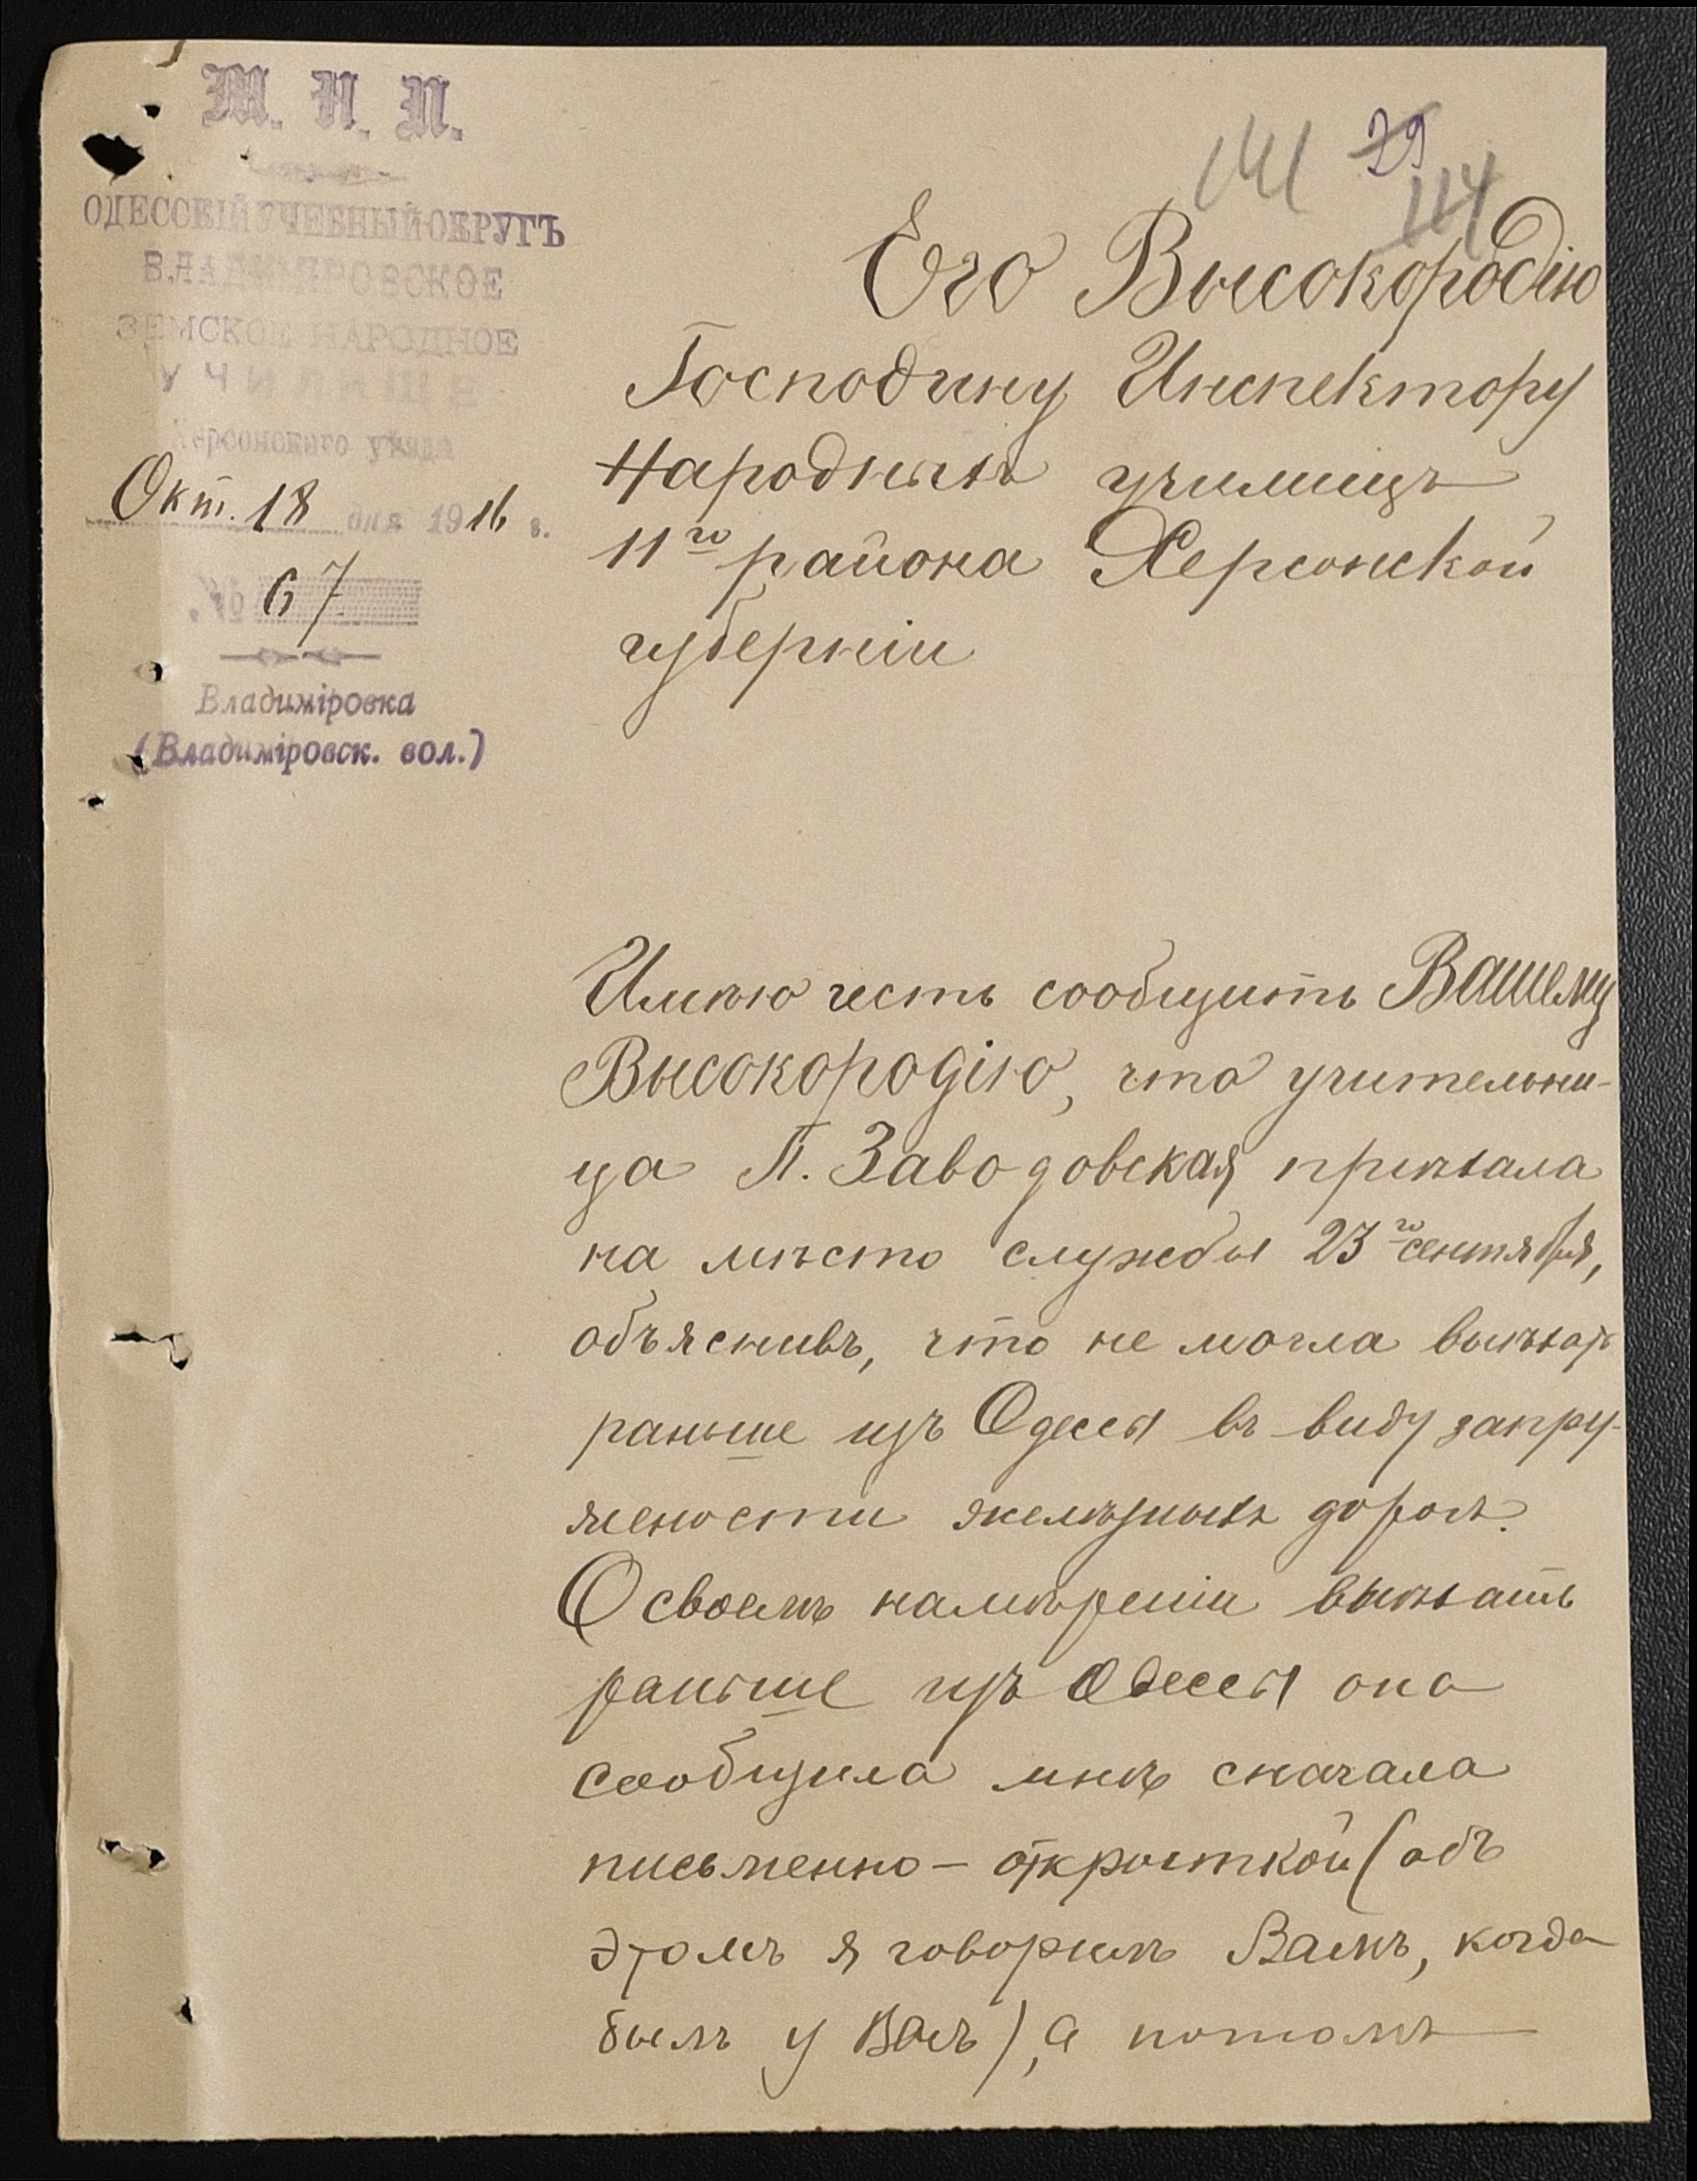 М. Н. П.
ОДЕССКІЙ УЧЕБНЫЙ ОКРУГЪ
ВЛАДИМІРОВСКОЕ
ЗЕМСКОЕ НАРОДНОЕ
УЧИЛИЩЕ
Херсонскаго уѣзда
Окт. 18 дня 1916 г.
№ 67
Владиміровка
(Владиміровск. вол.)
141 79
114
Его Высокородію
Господину Инспектору
Народныхъ училищъ
11го района Херсонской
губерніи
Имѣю честь сообщить Вашему
Высокородію, что учительни-
ца П. Заводовская пріѣхала
на мѣсто службы 23го сентября,
объяснивъ, что не могла выѣхать
раньше изъ Одессы въ виду запру-
женности желѣзныхъ дорогъ.
О своемъ намѣреніи выѣхать
раньше изъ Одессы она
сообщила мнѣ сначала
письменно – открыткой (объ
этомъ я говорилъ Вамъ, когда
былъ у Васъ), а потомъ